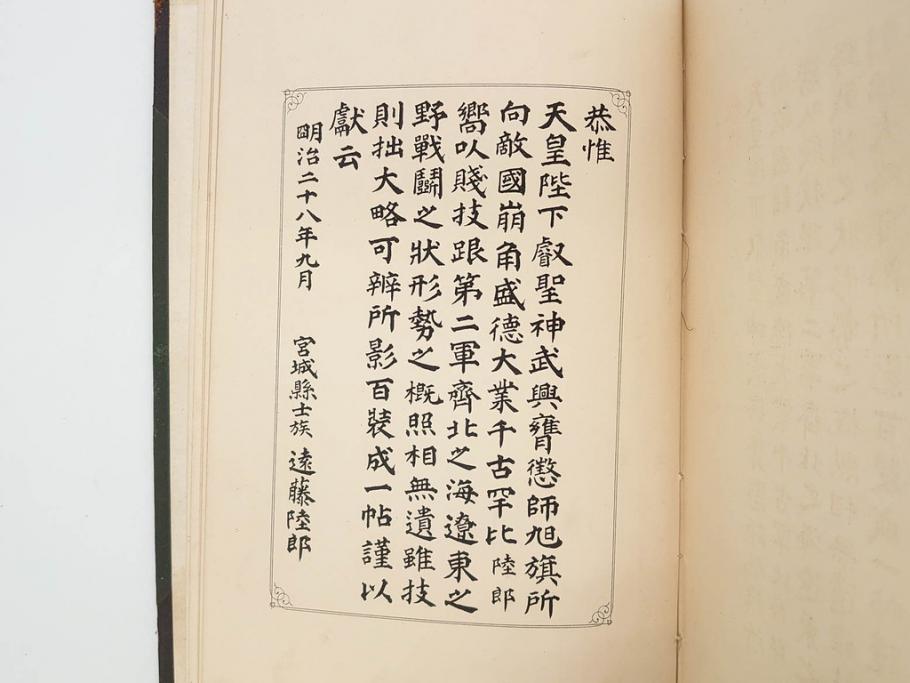 恭惟
天皇陛下叡聖神武興膺懲師旭旗所
向敵國崩角盛德大業千古罕比陸郎
嚮以賤技跟第二軍齊北之海遼東之
野戰鬪之狀形勢之概照相無遺雖技
則拙大略可辨所影百裝成一帖謹以
獻云
明治二十八年九月 宮城縣士族 遠藤陸郎